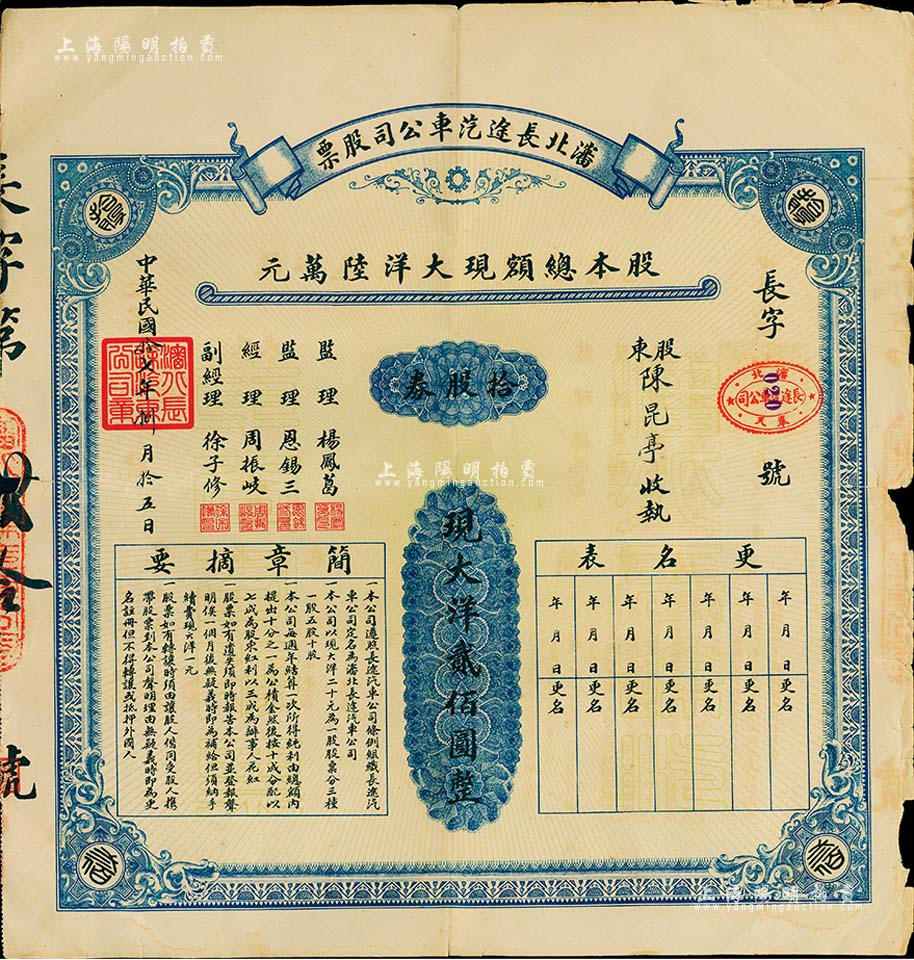 上海陽明拍賣
www.yangmingauction.com
瀋北長途汽車公司股票
股本總額現大洋陸萬元
長字
020
號
瀋北
長途汽車公司
奉天
股東
陳昆亭收執
拾股券
現大洋貳佰圓整
監理 楊鳳葛
監理 恩錫三
經理 周振岐
副經理 徐子修
中華民國拾七年 月拾五日
更名表
年月日更名
年月日更名
年月日更名
年月日更名
年月日更名
年月日更名
年月日更名
簡章摘要
一本公司遵照長途汽車公司條例組織長途汽
車公司定名為瀋北長途汽車公司
一本公司以現大洋二十元為一股股票分三種
一股五股十股
一本公司每週年結算一次所得純利由總額內
提出十分之一為公積金然後按十成分配以
七成為股東紅利以三成為辦事人花紅
一股票如有遺失須即時報告本公司並登報聲
明俟一個月後無疑義時即為補給但須納手
續費現大洋一元
一股票如有轉讓時須由讓股人偕同受股人携
帶股票到本公司聲明理由無疑義時即為更
名註冊但不得轉讓或抵押外國人
長字第
號
上海陽明拍賣
www.yangmingauction.com
上海陽明拍賣
www.yangmingauction.com